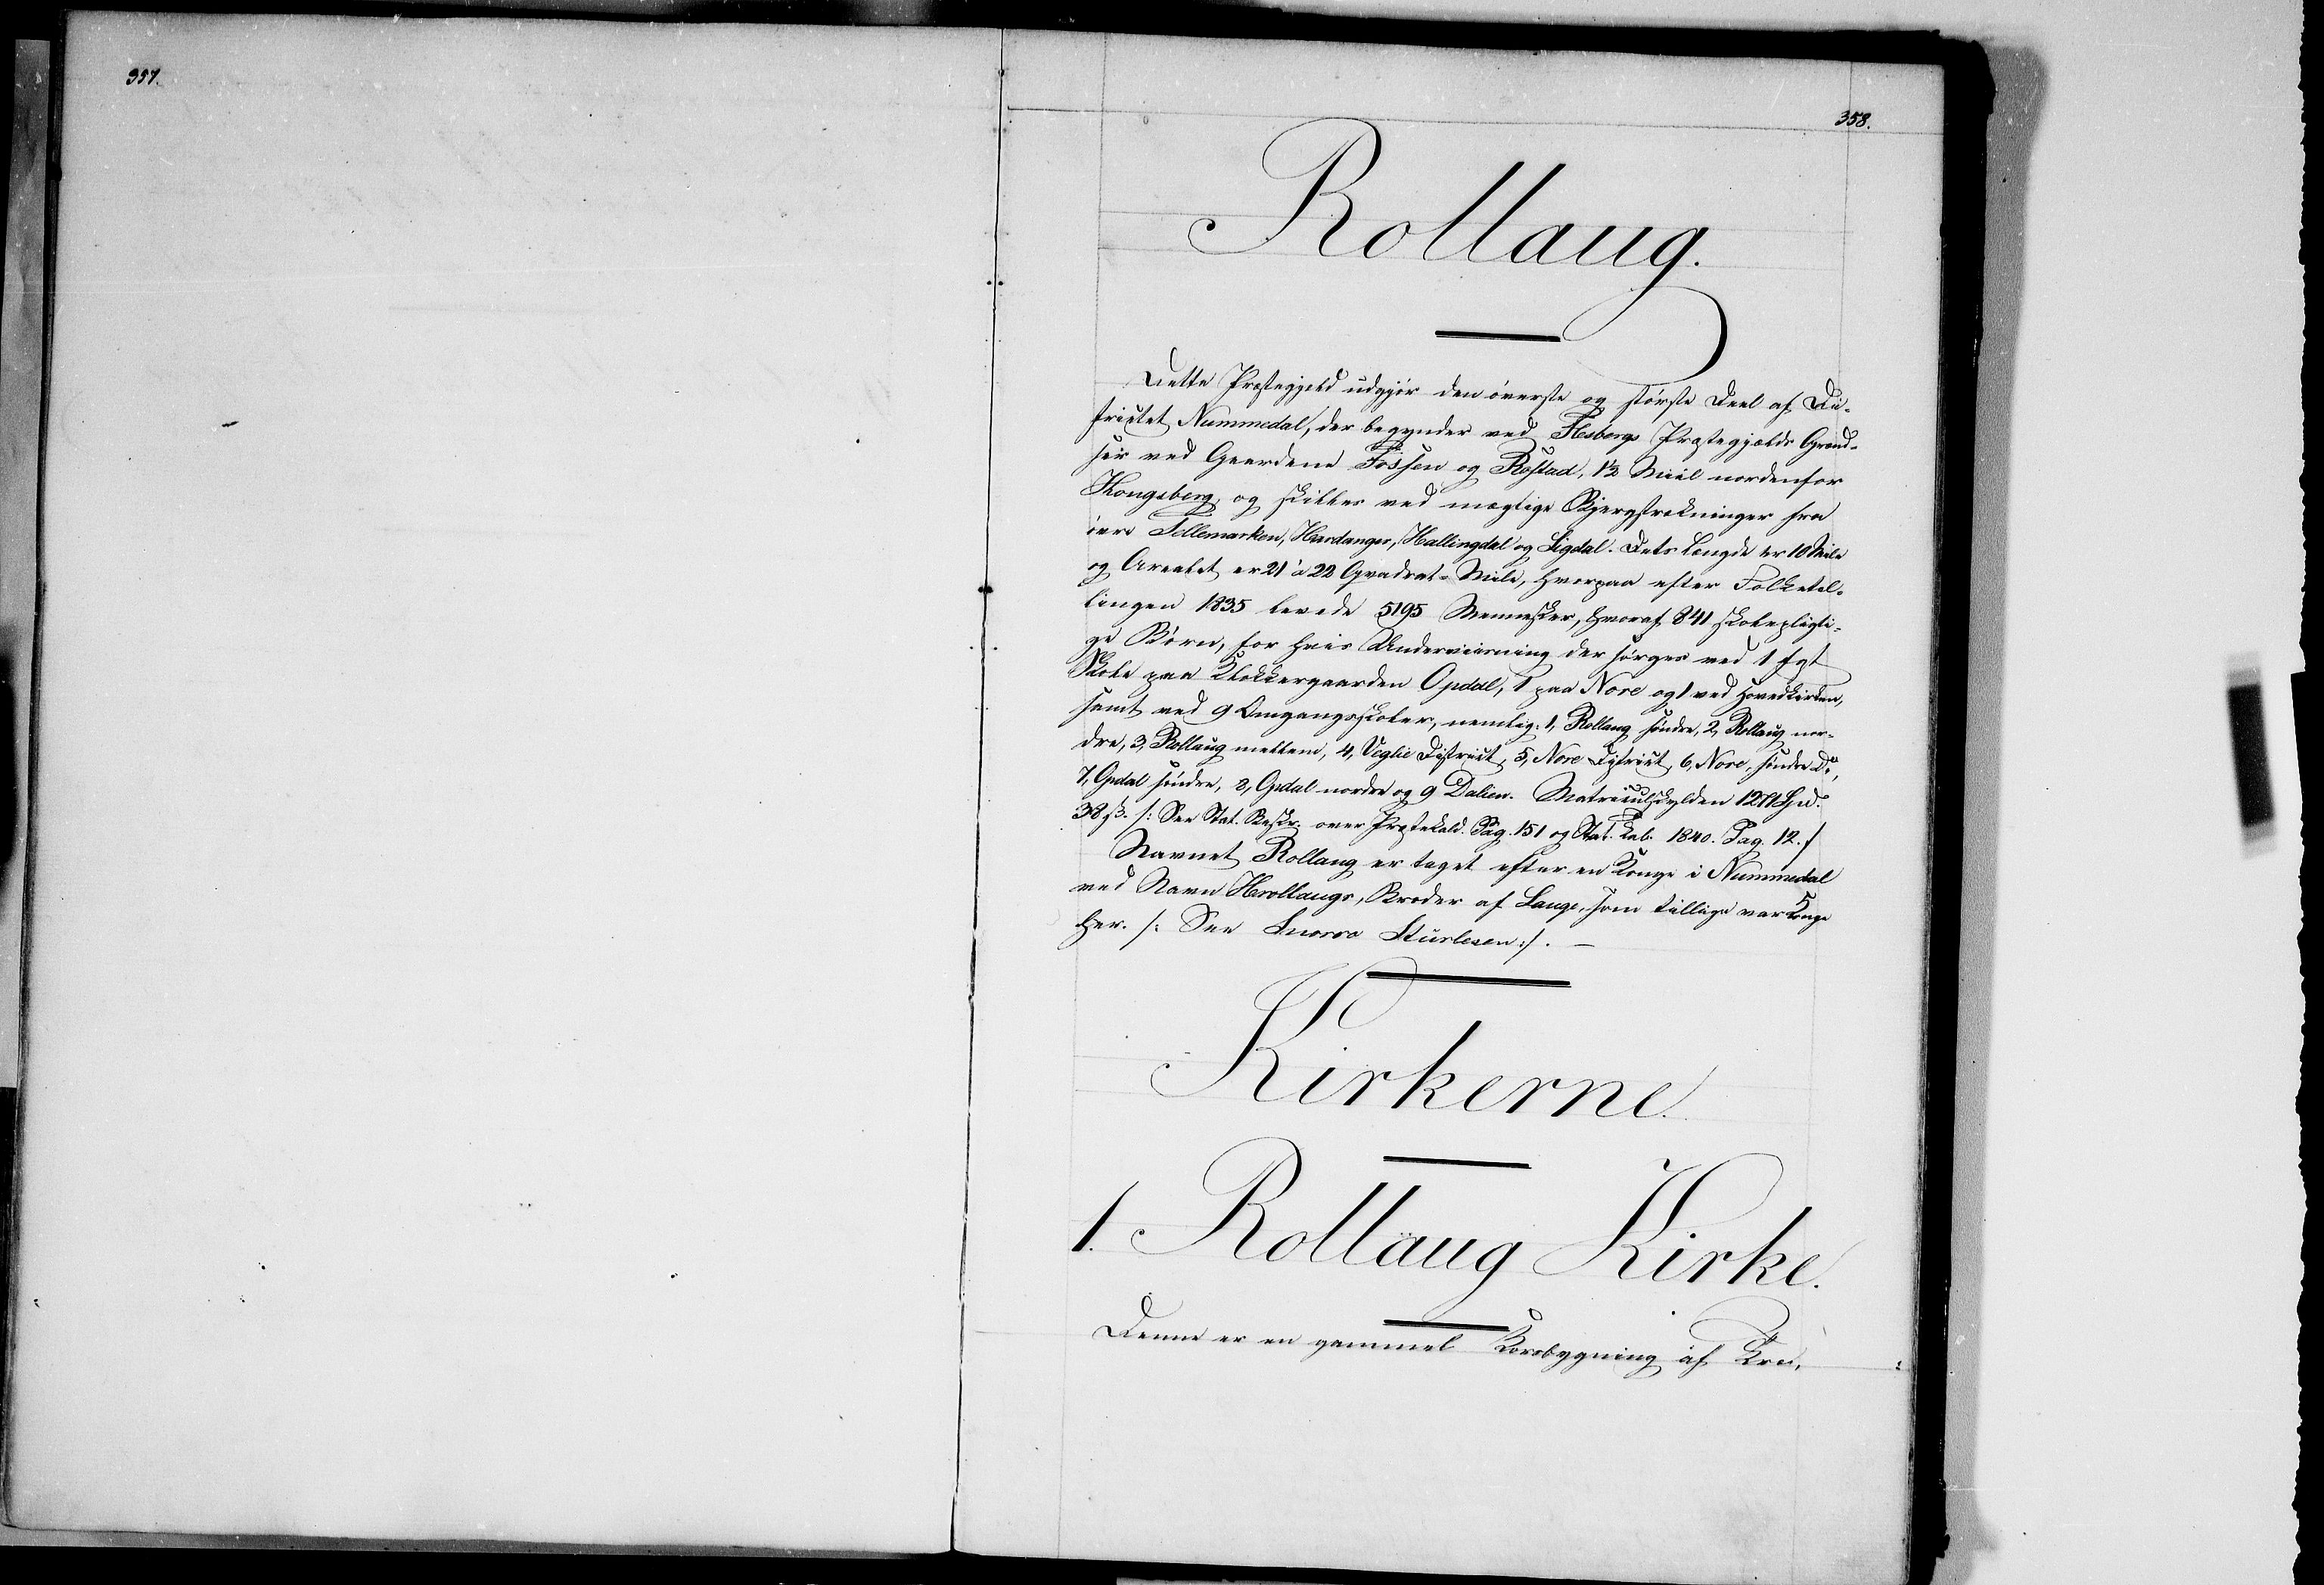 357.
358.
Rollaug.
Dette Præstegjeld udgjør den øverste og største Deel af Di-
strictet Nummedal, der begynder ved Flesbergs Præstegjelds Grænd-
ser ved Gaardene Fossen og Rostad, 1½ Miil nordenfor
Kongsberg, og skilles ved mægtige Bjergstrækninger fra
övre Tellemarken, Hardanger, Hallingdal og Sigdal. Dets Længde er 10 Mile
og Arealet er 21 à 22 Qvadrat-Mile, hvorpaa efter Folketæl-
lingen 1835 levede 5195 Mennesker, hvoraf 841 skolepligti-
ge Börn, for hvis Underviisning der sörges ved 1 fast
Skole paa Klokkergaarden Opdal, 1 paa Nore og 1 ved Hovedkirken,
samt ved 9 Omgangsskoler, nemlig: 1, Rollaug söndre, 2, Rollaug nor-
dre, 3, Rollaug mellem, 4, Veglie District, 5, Nore District, 6, Nore, söndre Do,
7, Opdal söndre, 8, Opdal nordre og 9 Dalien. Matriculskylden
38 ß. /: See Stat. Beskr. over Præstekald. Pag. 151 og Stat. Tab. 1840. Pag. 12. /
Navnet Rollaug er taget efter en Konge i Nummedal
ved Navn Hrollaugr, Broder af Lauge, som tillige var Konge
her. /: See Snorro Sturlesen :/. –
Kirkerne.
1. Rollaug Kirke.
Denne er en gammel Korsbygning af Træ,